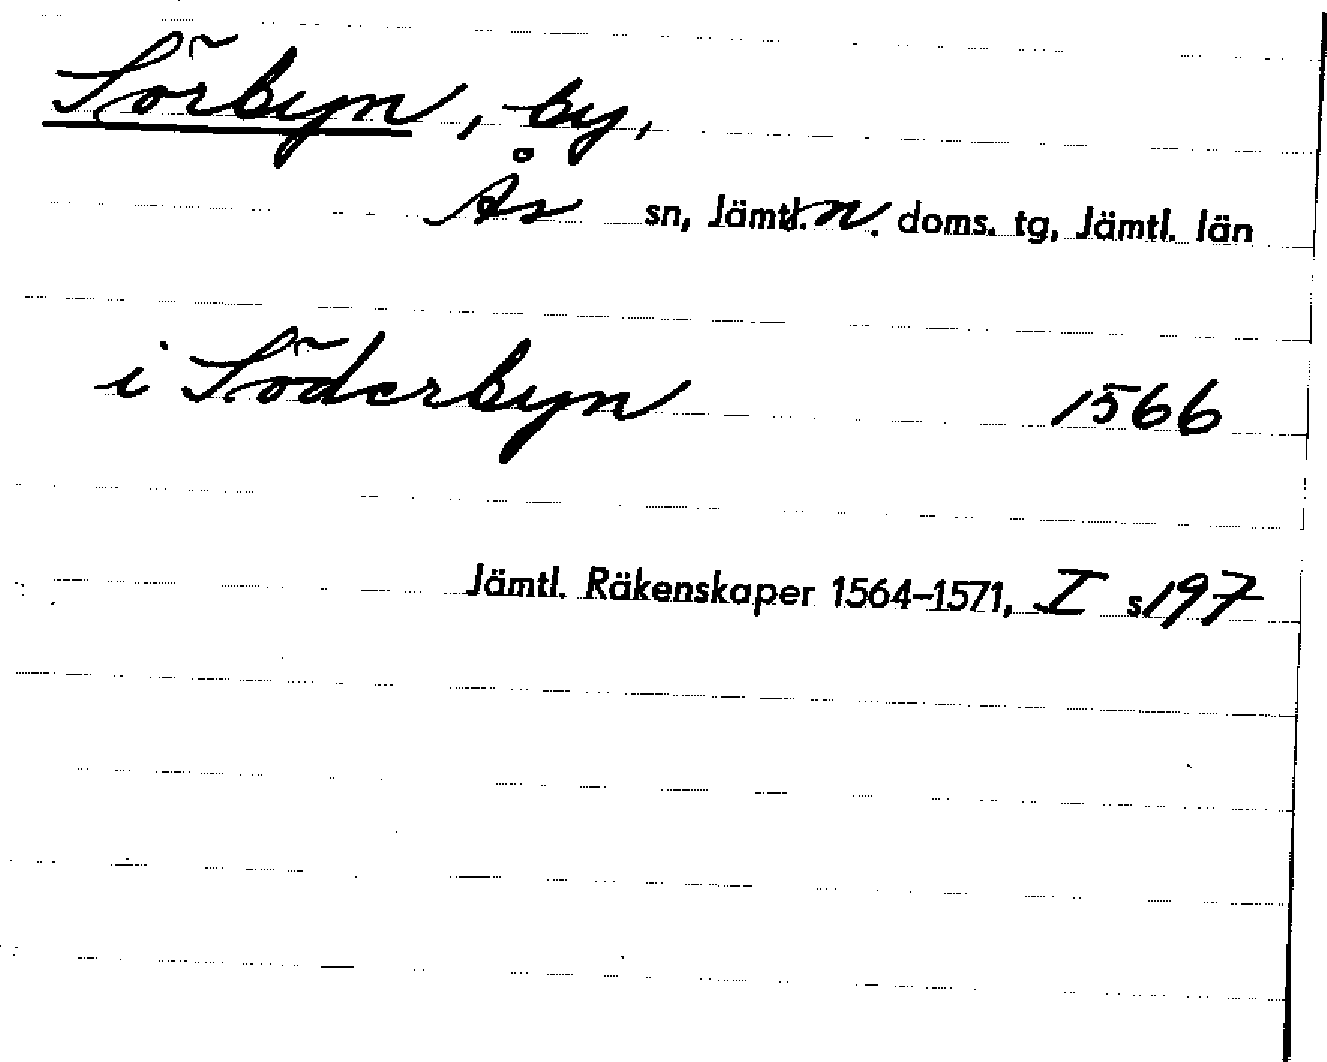 Sörbyn, by,
Ås sn, Jämtl. n. doms. tg, Jämtl. län
i Söderbyn 1566
Jämtl. Räkenskaper 1564–1571, I s 197